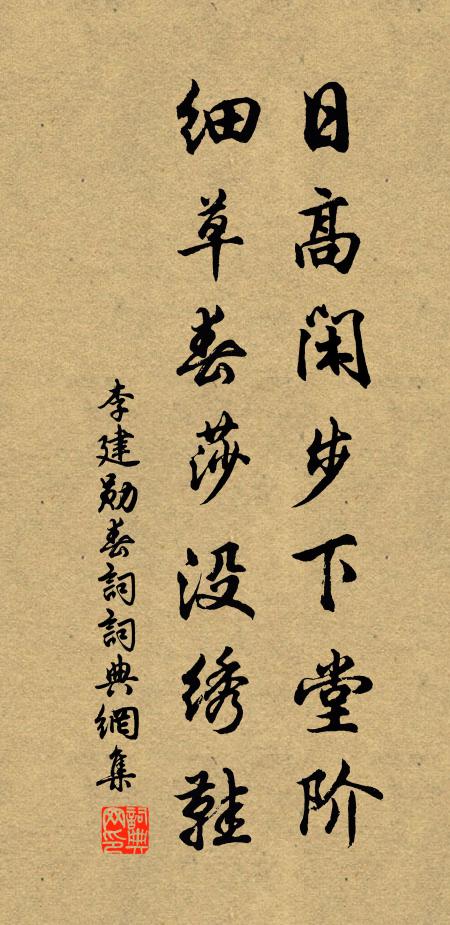 日高闲步下堂阶
细草春莎没绣鞋
李建勋春詞詞典網集
詞典网印